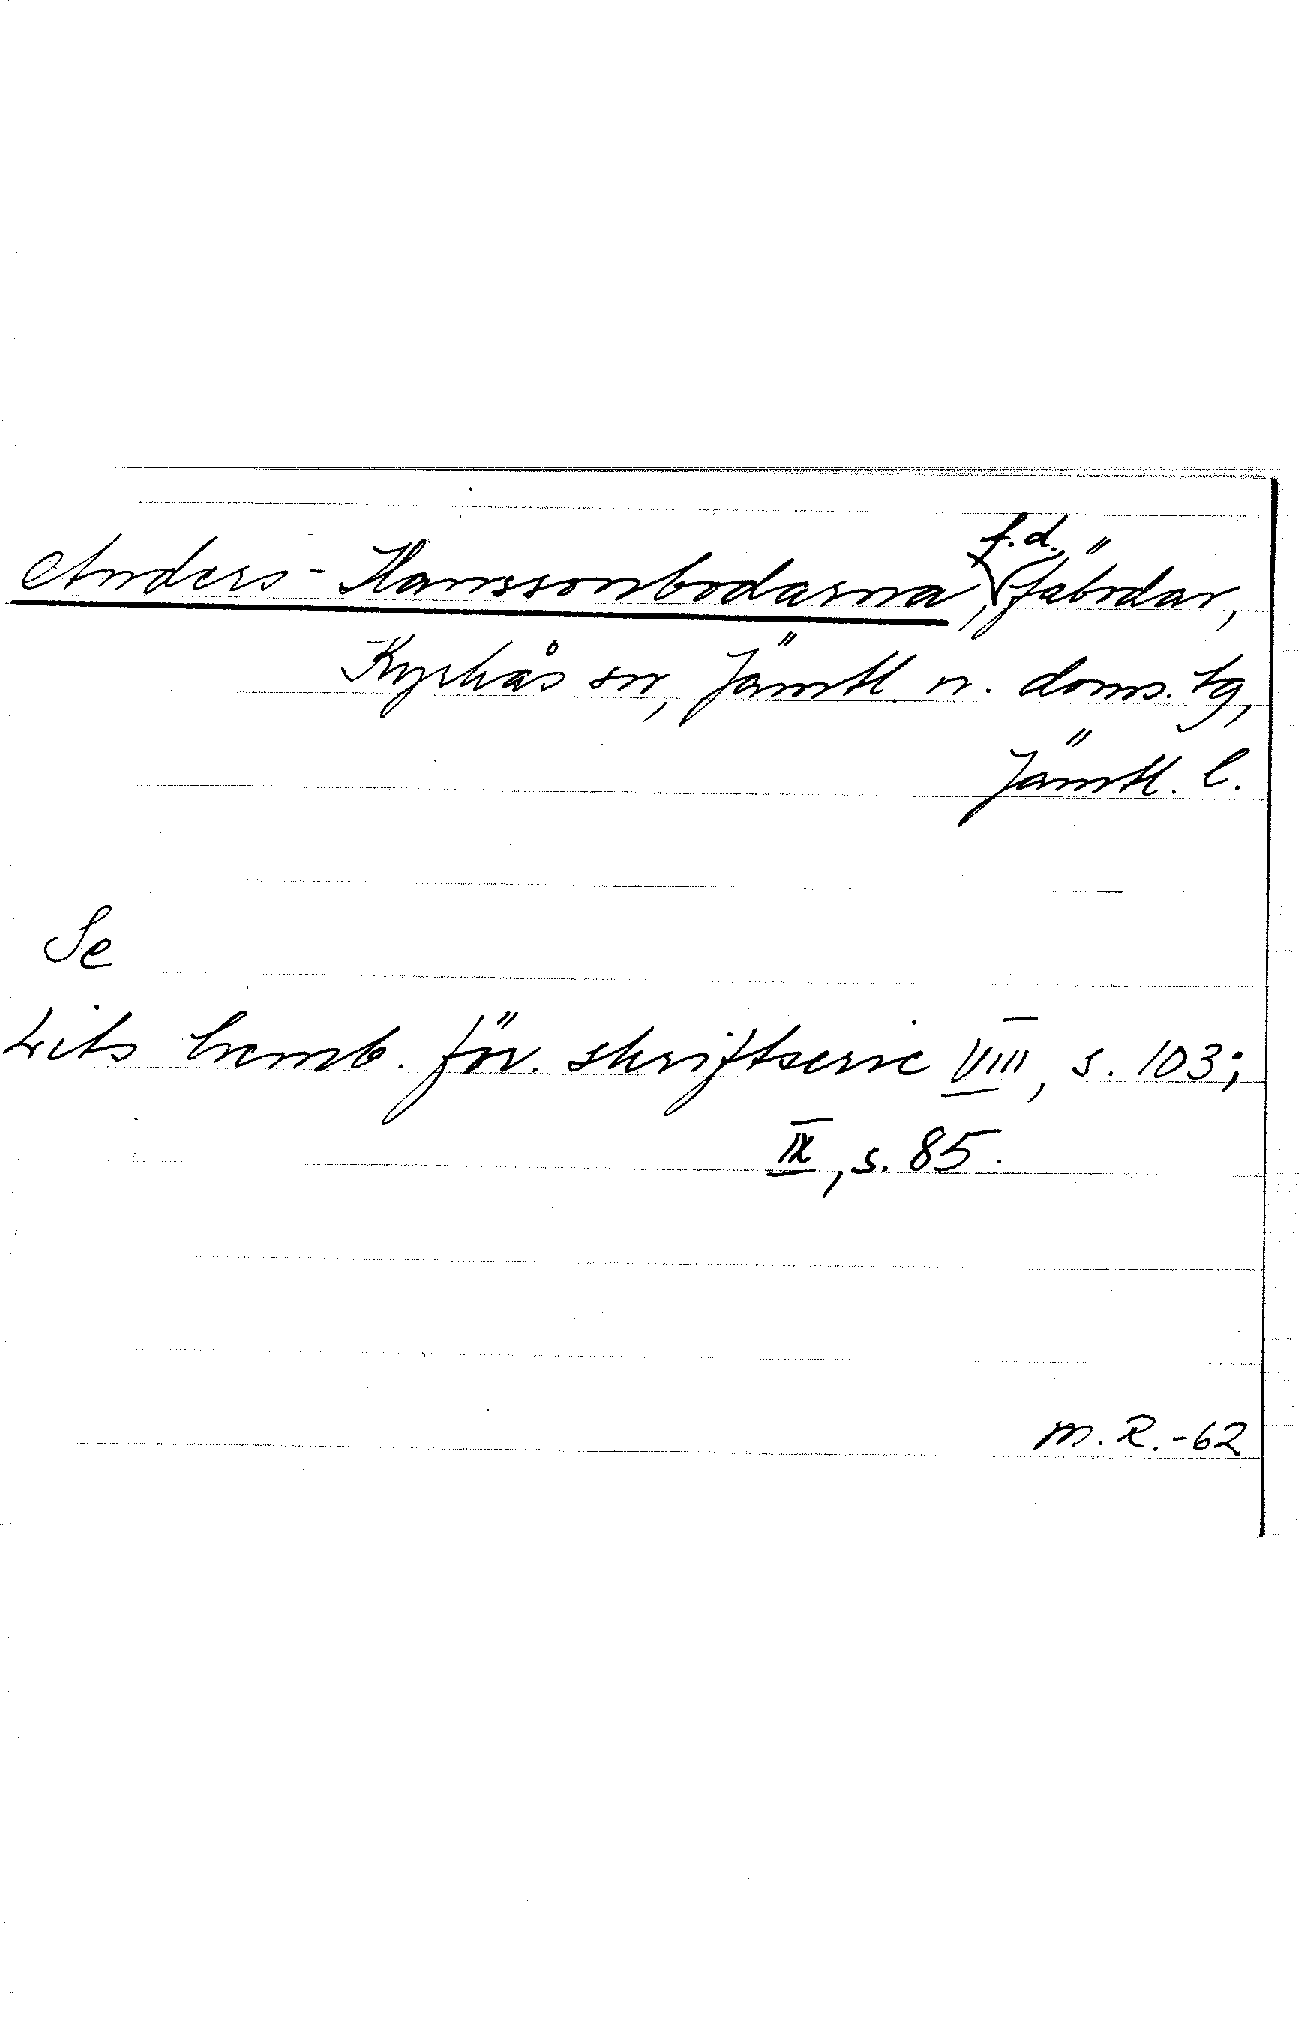 Anders-Hanssonbodarna, f.d. fäbodar,
Kyrkås sn, Jämtl. n. doms. tg,
Jämtl. l.
Se
Lits hemb. för. skriftserie VIII, s. 103;
IX, s. 85.
M. R. -62